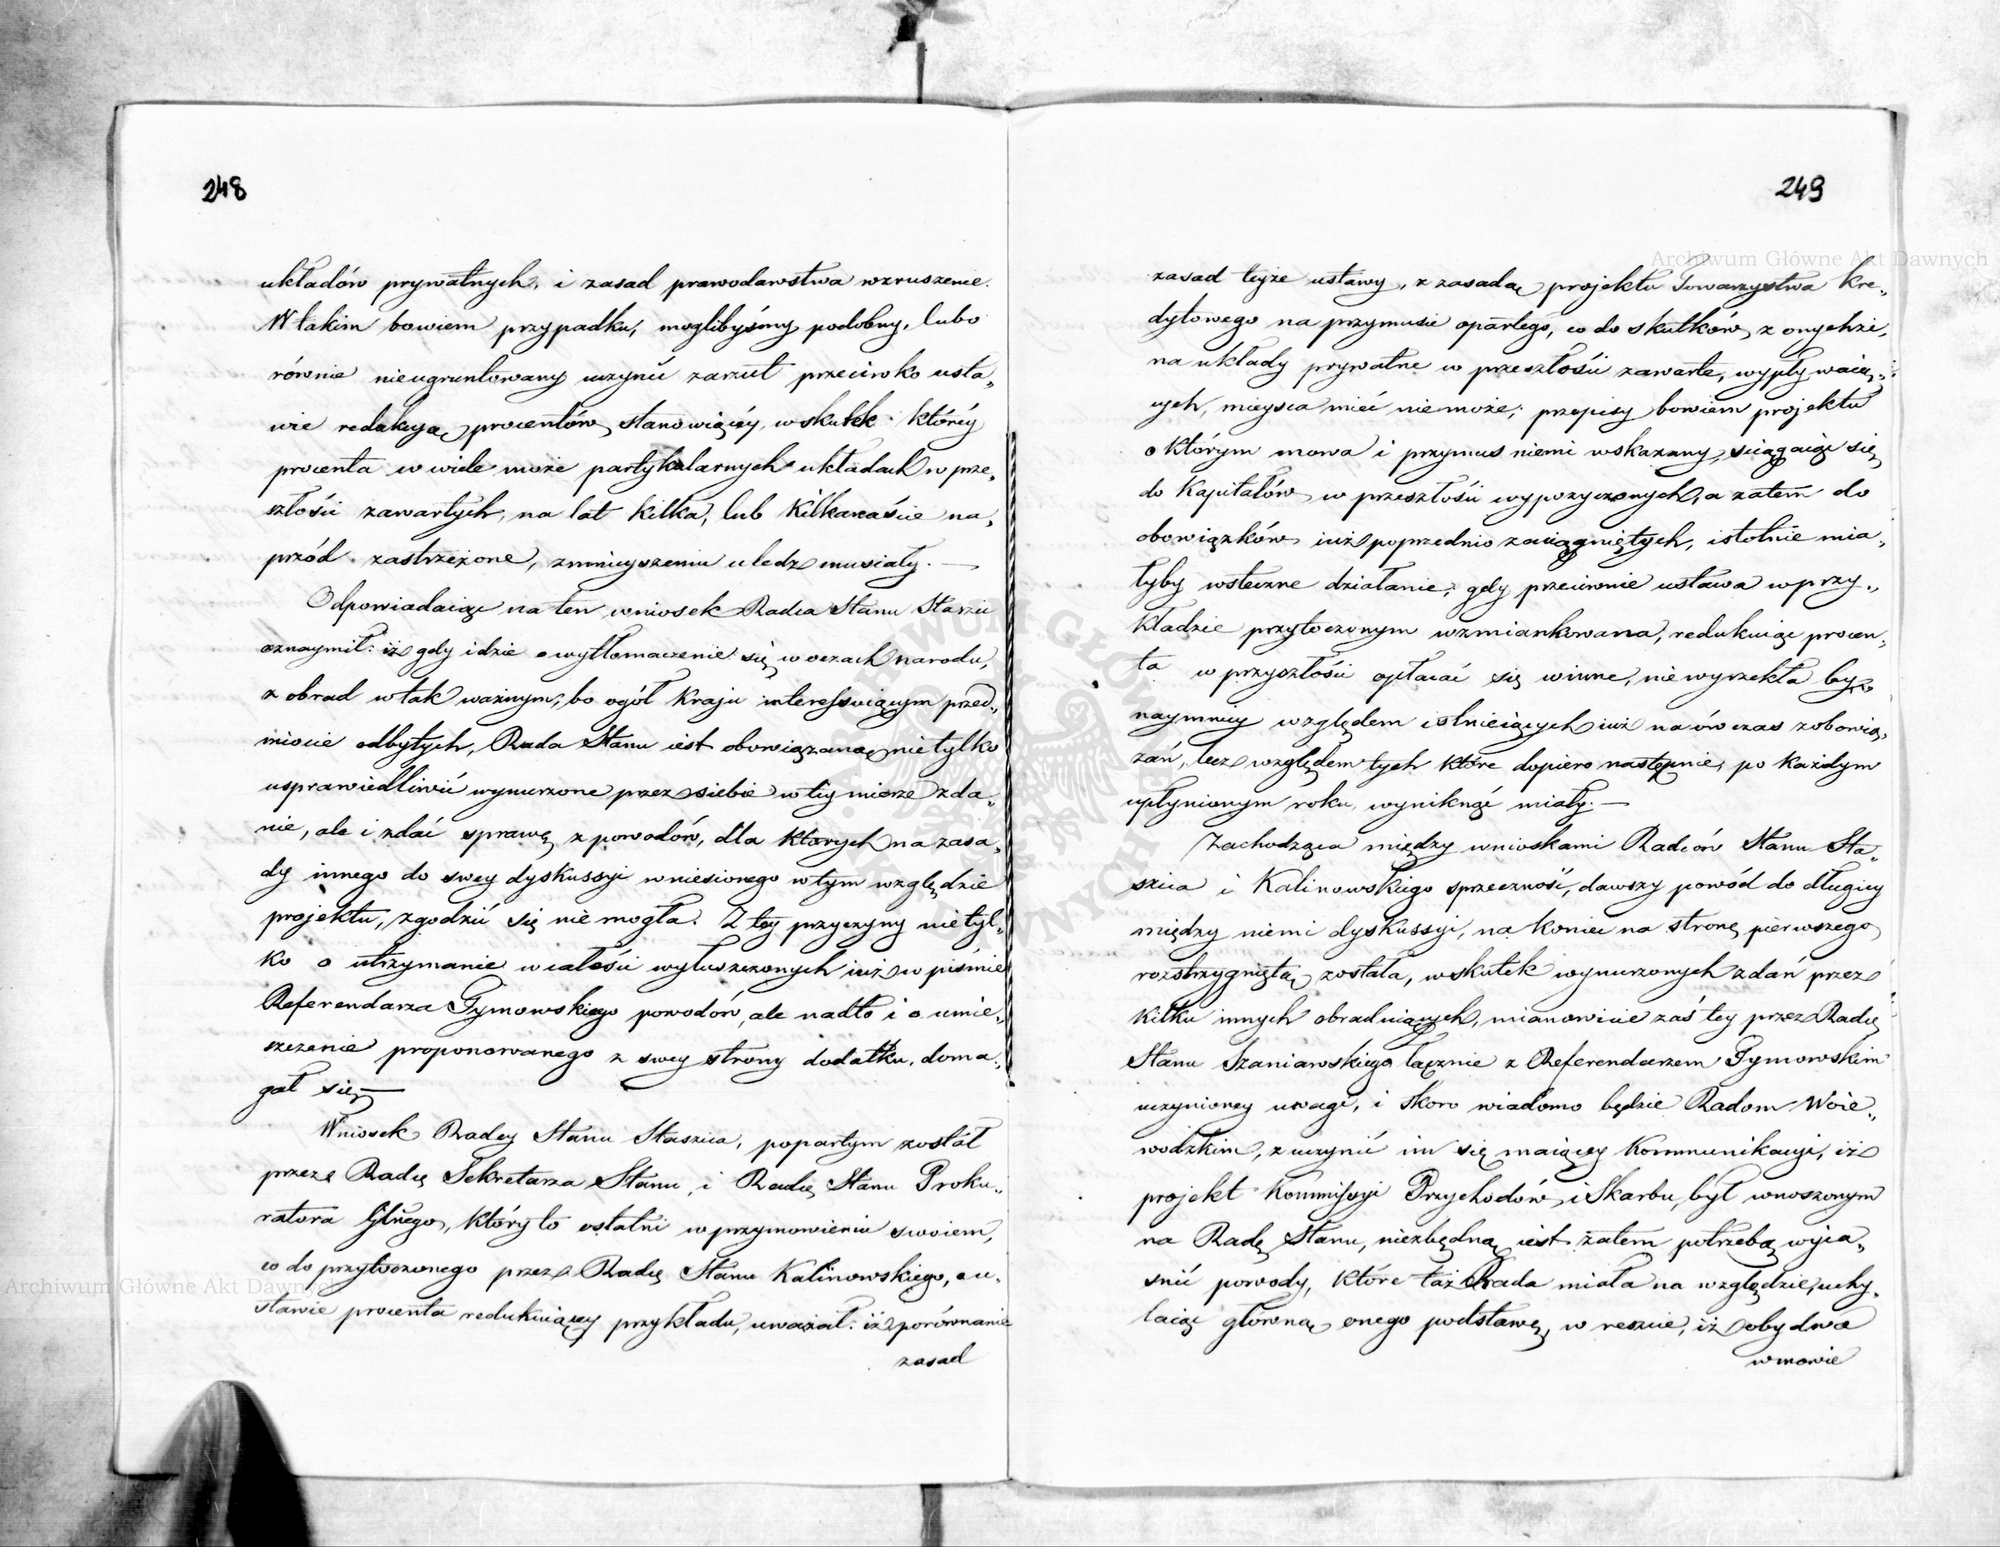 248
układów prywatnych, i zasad prawodawstwa wzruszenie.
W takim bowiem przypadku, moglibyśmy podobny, lubo
równie nieugruntowany uczynić zarzut przeciwko usta„
wie redukcyą procentów stanowiącéy, w skutek któréy
procenta w wiele może partykularnych układach w prze„
szłości zawartych, na lat kilka, lub kilkanaście na„
przód zastrzeżone, zmnieyszeniu uledz musiały. —
Odpowiadaiąc na ten wniosek Radca Stanu Staszic
oznaymił: iż gdy idzie o wytłomaczenie się w oczach narodu,
z obrad w tak ważnym, bo ogół kraju interessuiącym przed„
miocie odbytych, Rada Stanu iest obowiązaną nietylko
usprawiedliwić wynurzone przez siebie w tey mierze zda„
nie, ale i zdać sprawę z powodów, dla których na zasa„
dy innego do swey dyskussyi wniesionego w tym względzie
projektu, zgodzić się nie mogła. Z tey przyczyny nietyl„
ko o utrzymanie w całości wyłuszczonych iuż w piśmie
Referendarza Tymowskiego powodów, ale nadto i o umie„
szczenie proponowanego z swey strony dodatku, doma„
gał się. —
Wniosek Radcy Stanu Staszica, popartym został
przez Radcę Sekretarza Stanu, i Radcę Stanu Proku„
ratora Głnego, który to ostatni w przymówieniu swoiem,
co do przytoczonego przez Radcę Stanu Kalinowskiego, o u„
stawie procenta redukuiącey przykładu, uważał: iż porównanie
zasad
249
zasad teyże ustawy, z zasadą projektu Towarzystwa Kre„
dytowego na przymusie opartego, co do skutków z onychże,
na układy prywatne w przeszłości zawarte, wypływaią„
cych, mieysca mieć nie może; przepisy bowiem projektu
o którym mowa i przymus niemi wskazany, ściągaiąc się
do kapitałów w przeszłości wypożyczonych, a zatem do
obowiązków iuż poprzednio zaciągniętych, istotnie mia„
łyby wsteczne działanie; gdy przeciwnie ustawa w przy„
kładzie przytoczonym wzmiankowana, redukuiąc procen„
ta w przyszłości opłacać się winne, nie wyrzekła by
naymniey względem istnieiących iuż naówczas zobowią„
zań, lecz względem tych które dopiero następnie, po każdym
upłynionym roku, wyniknąć miały. —
Zachodząca między wnioskami Radców Stanu Sta„
szica i Kalinowskiego sprzeczność, dawszy powód do długiey
między niemi dyskussyi, na koniec na stronę pierwszego
rozstrzygniętą została, w skutek wynurzonych zdań przez
kilku innych obraduiących, mianowicie zaś tey przez Radcę
Stanu Szaniawskiego łącznie z Referendarzem Tymowskim
uczynioney uwagi, i skoro wiadomo będzie Radom Woie„
wódzkim, z uczynić im się maiącey kommunikacyi, iż
projekt Kommissyi Przychodów i Skarbu, był wnoszonym
na Radę Stanu, niezbędną iest zatem potrzebą wyia„
śnić powody, które taż Rada miała na względzie, uchy„
laiąc główną onego podstawę, w reszcie, iż obydwa
w mowie
Archiwum Główne Akt Dawnych
Archiwum Główne Akt Dawnych